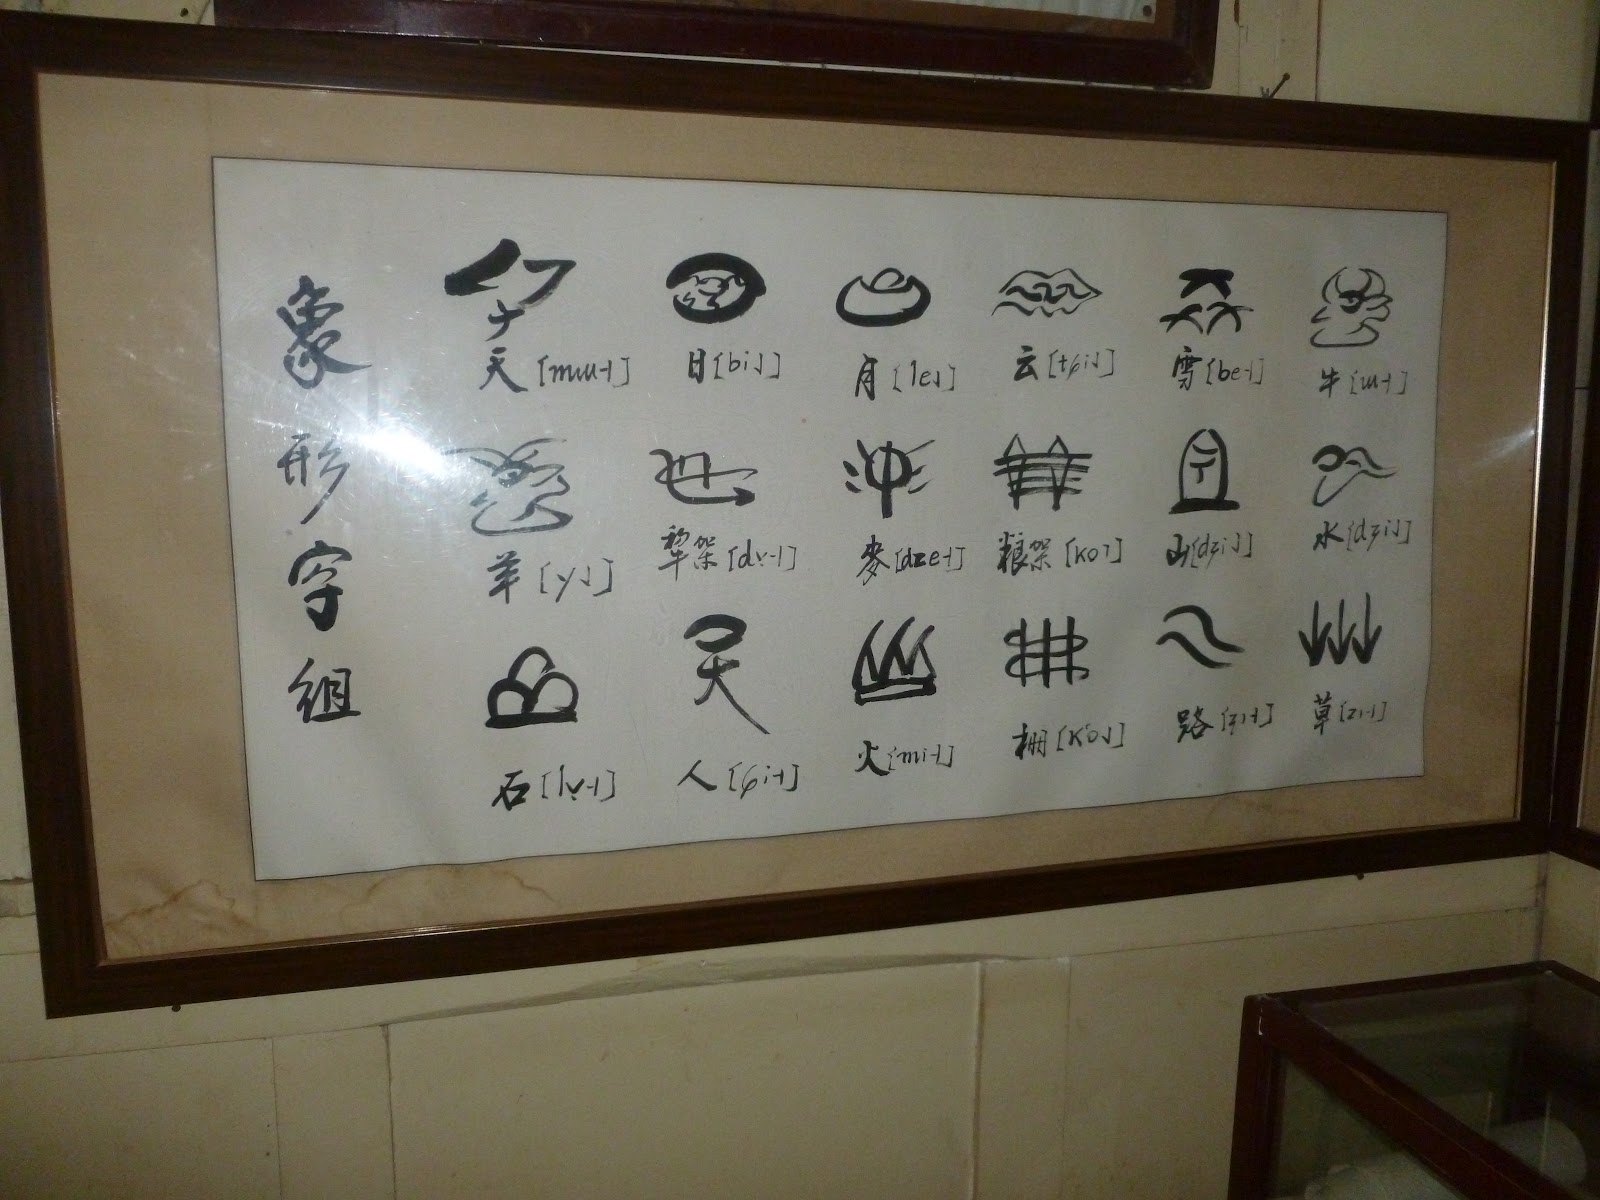 象形字组
天[mɯ˧] 日[bi˩] 月[le˩] 云[tɕi˩] 雪[be˧] 牛[ɯ˧]
羊[y˩] 犂架[dv̩˧] 麥[dze˧] 粮架[ko˥] 山[dʑi˩] 水[dʑi˩]
石[lv̩˧] 人[ɕi˧] 火[mi˧] 栅[k'o˩] 路 草[zɿ˧]